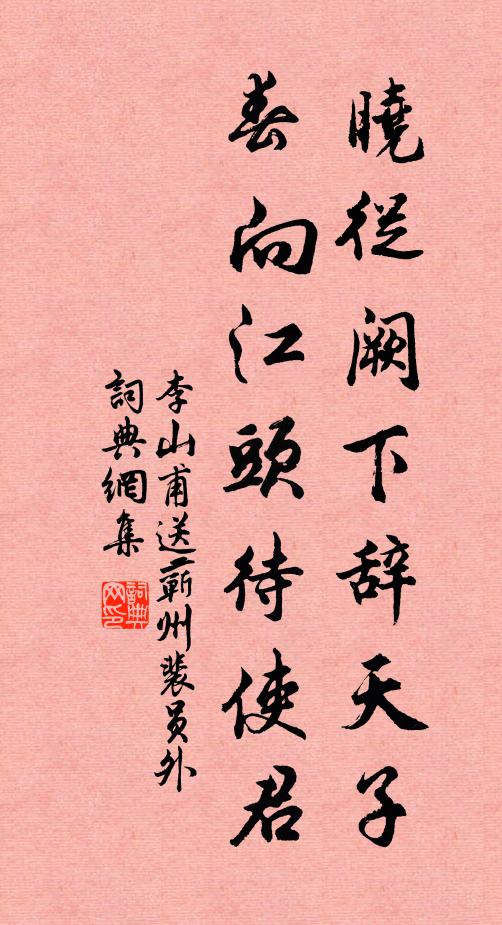 曉從阙下辞天子
春向江頭待使君
李山甫送蕲州裴员外
詞典網集
詞典网印